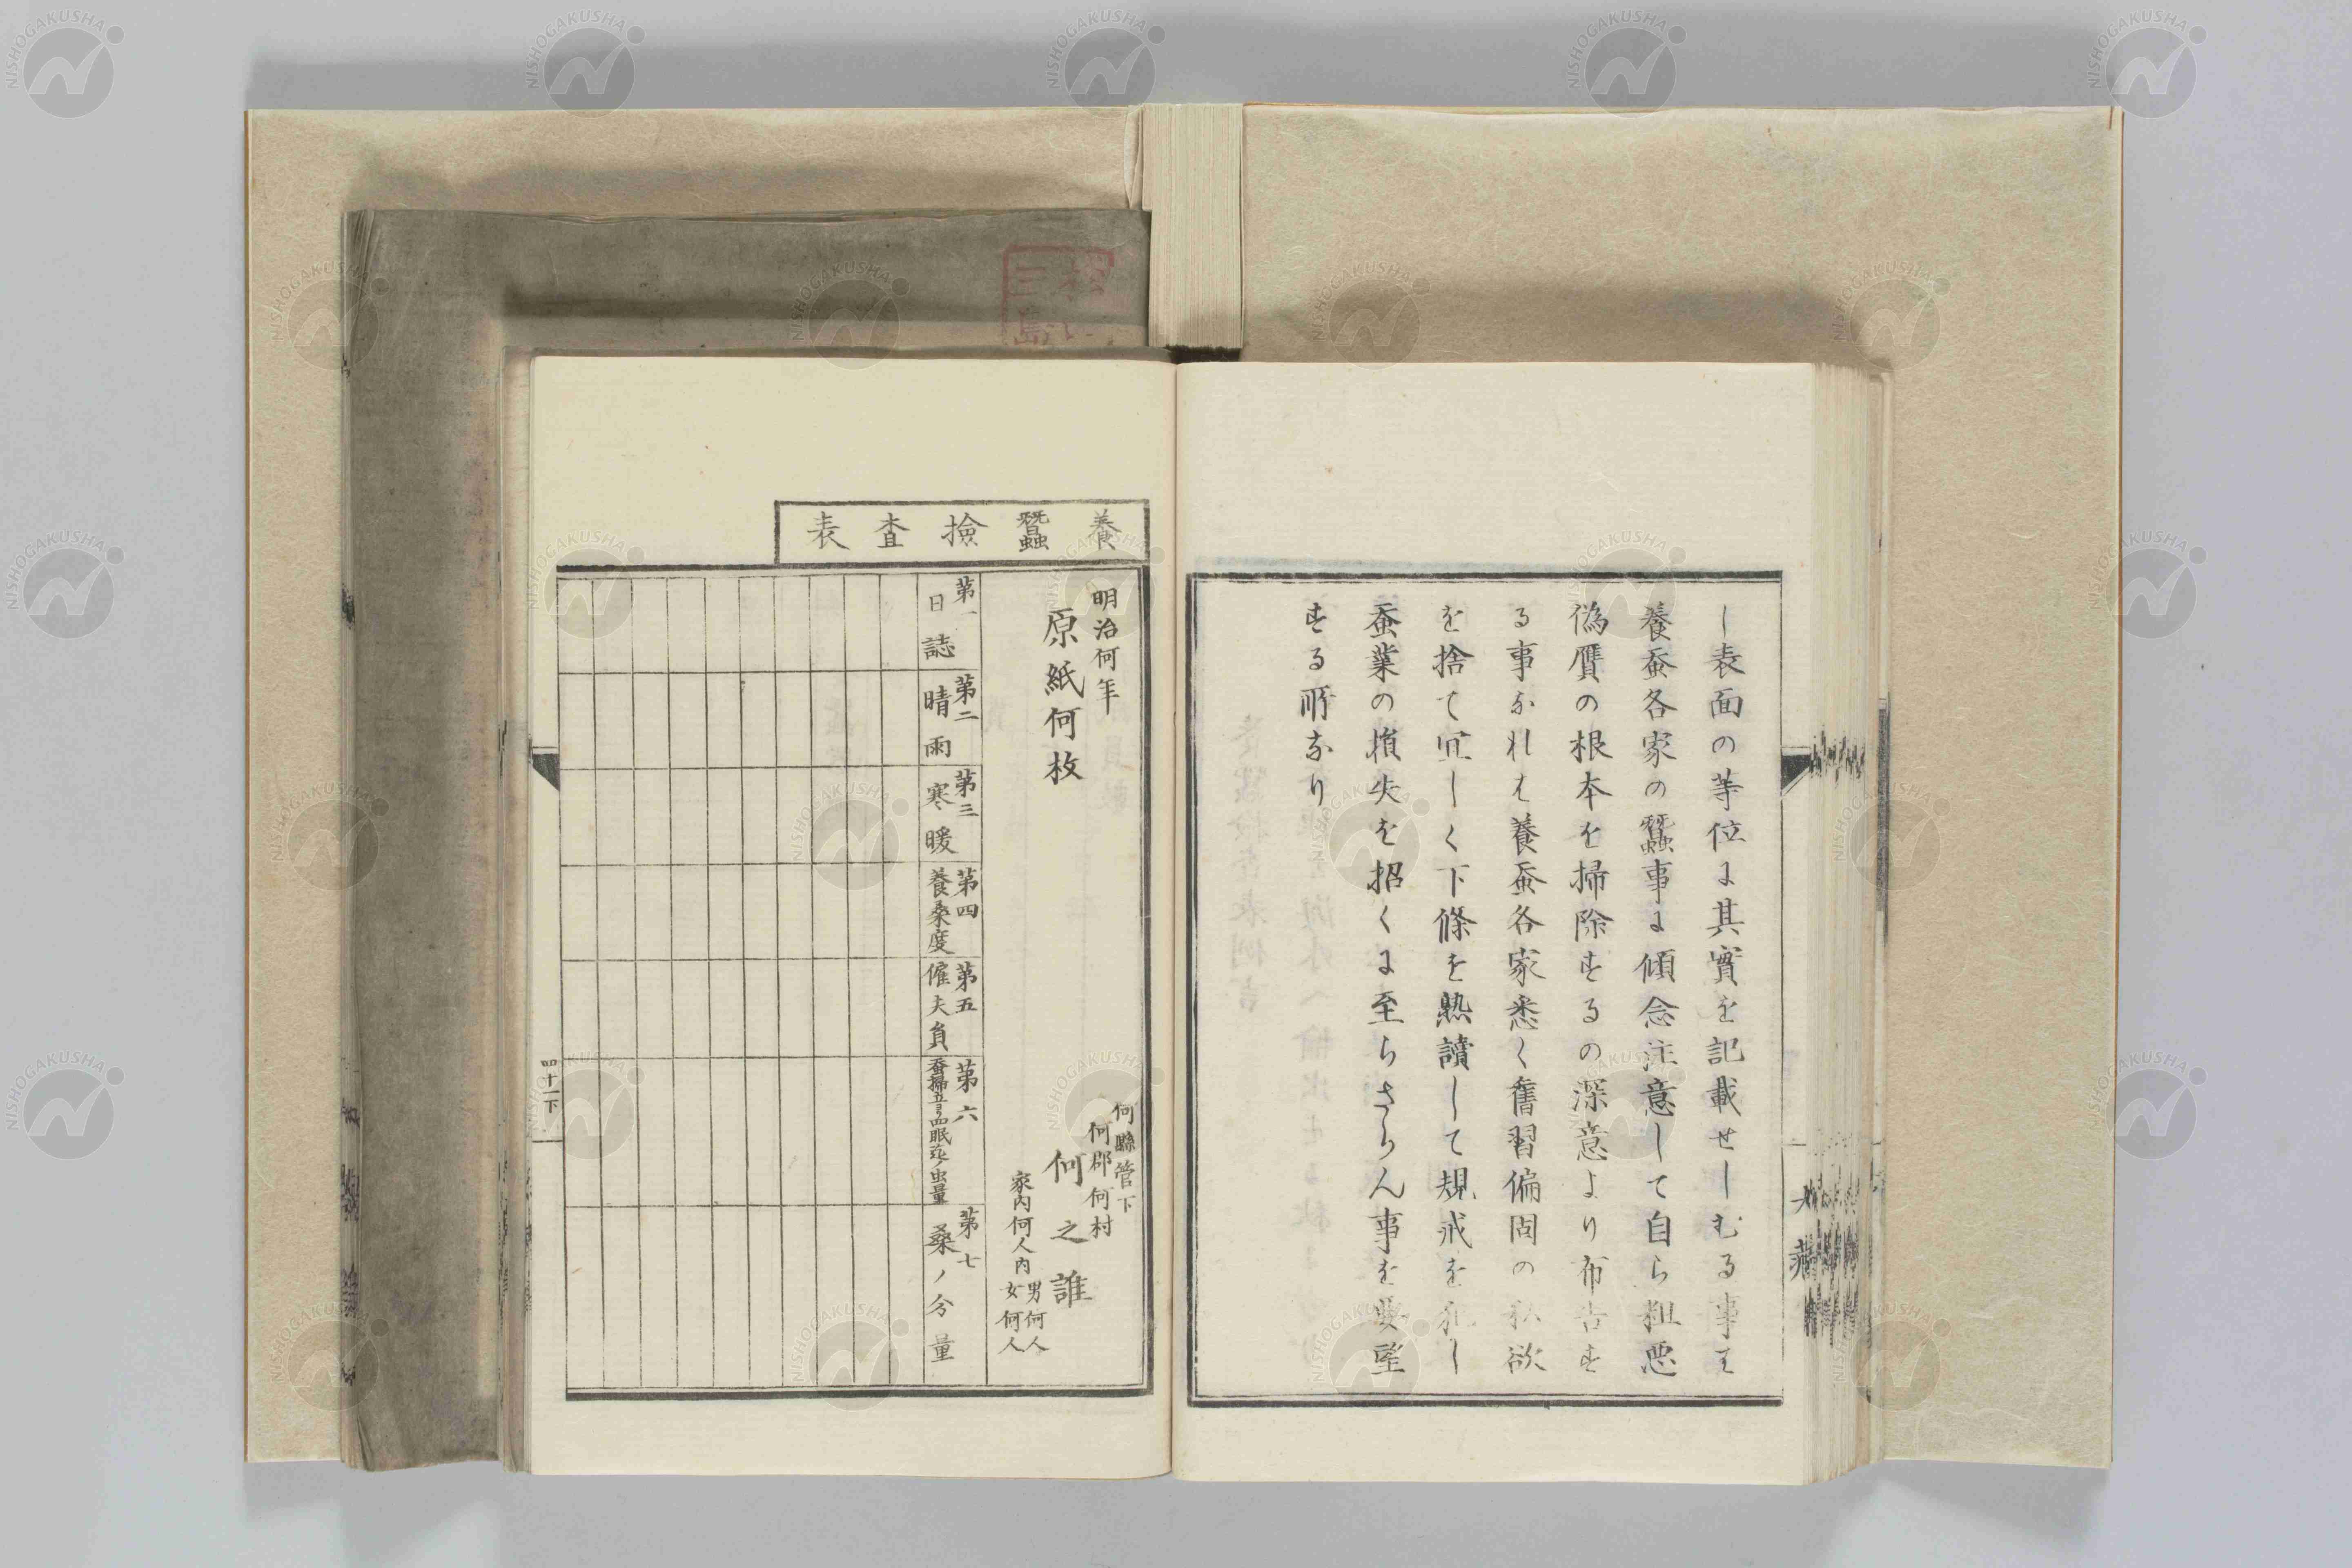 し表面の等位に其實を記載せしむる事は
養蚕各家の蠶事に傾念注意して自ら粗悪
偽贋の根本を掃除するの深意より布告す
る事なれは養蚕各家悉く舊習偏固の私欲
を捨て宜しく下條を熟讀して規戒を犯し
蚕業の損失を招くに至らさらん事を要望
する所なり
養蠶撿査表
明治何年
原紙何枚
何縣管下
何郡何村
何之誰
家内何人内
男何人
女何人
第一
日誌
第二
晴雨
第三
寒暖
第四
養桑度
第五
傭夫負
第六
第七
桑ノ分量
四十一下
NISHOGAKUSHA